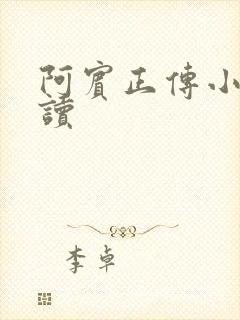 阿賓正傳小
讀
李卓